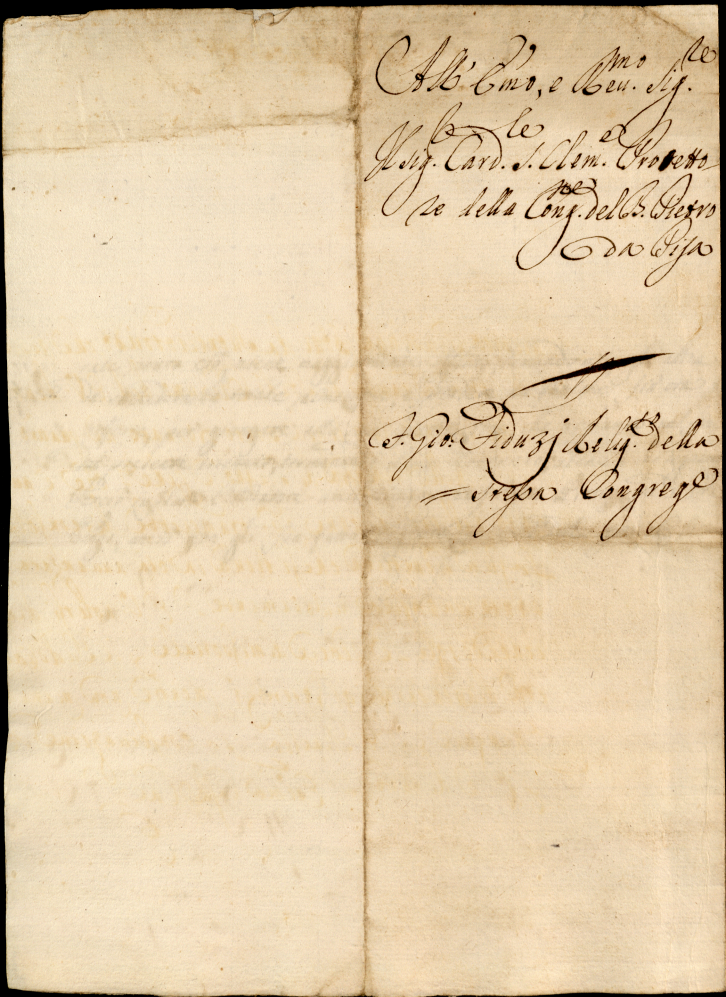 All' Em̃o, e Reu.mo Sig.re
Il Sig.re Card.le S. Clem.e Protetto
re della Cong.ne del B. Pietro
da Pisa
F. Gio. Fiduzj Relig.so della
= stessa Congreg.e